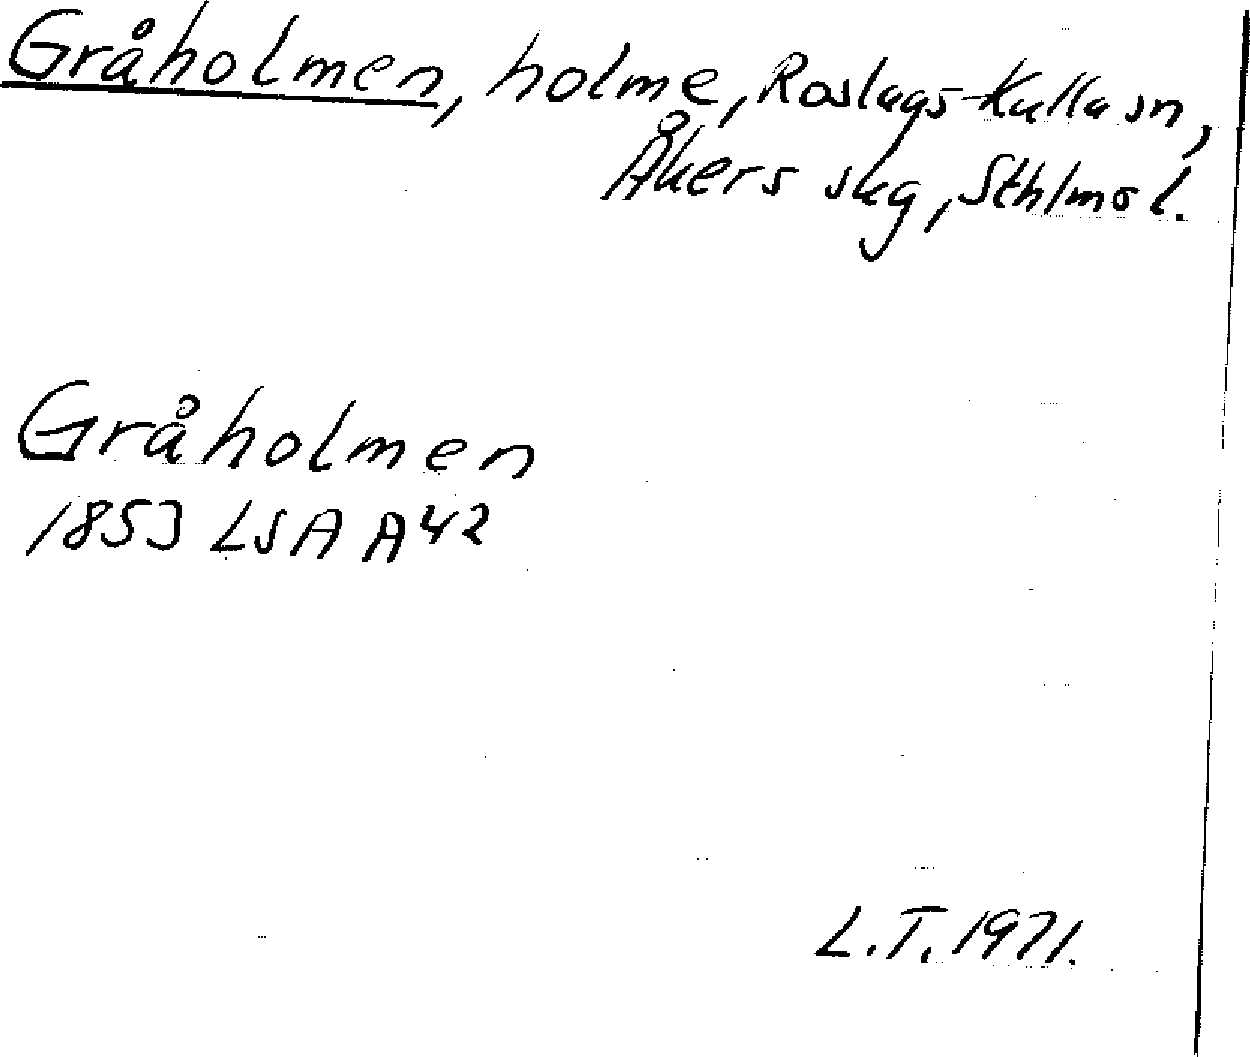 Gråholmen, holme, Roslags-Kulla sn,
Åkers skg, Sthlms l.
Gråholmen
1853 LSA A42
L.T. 1971.